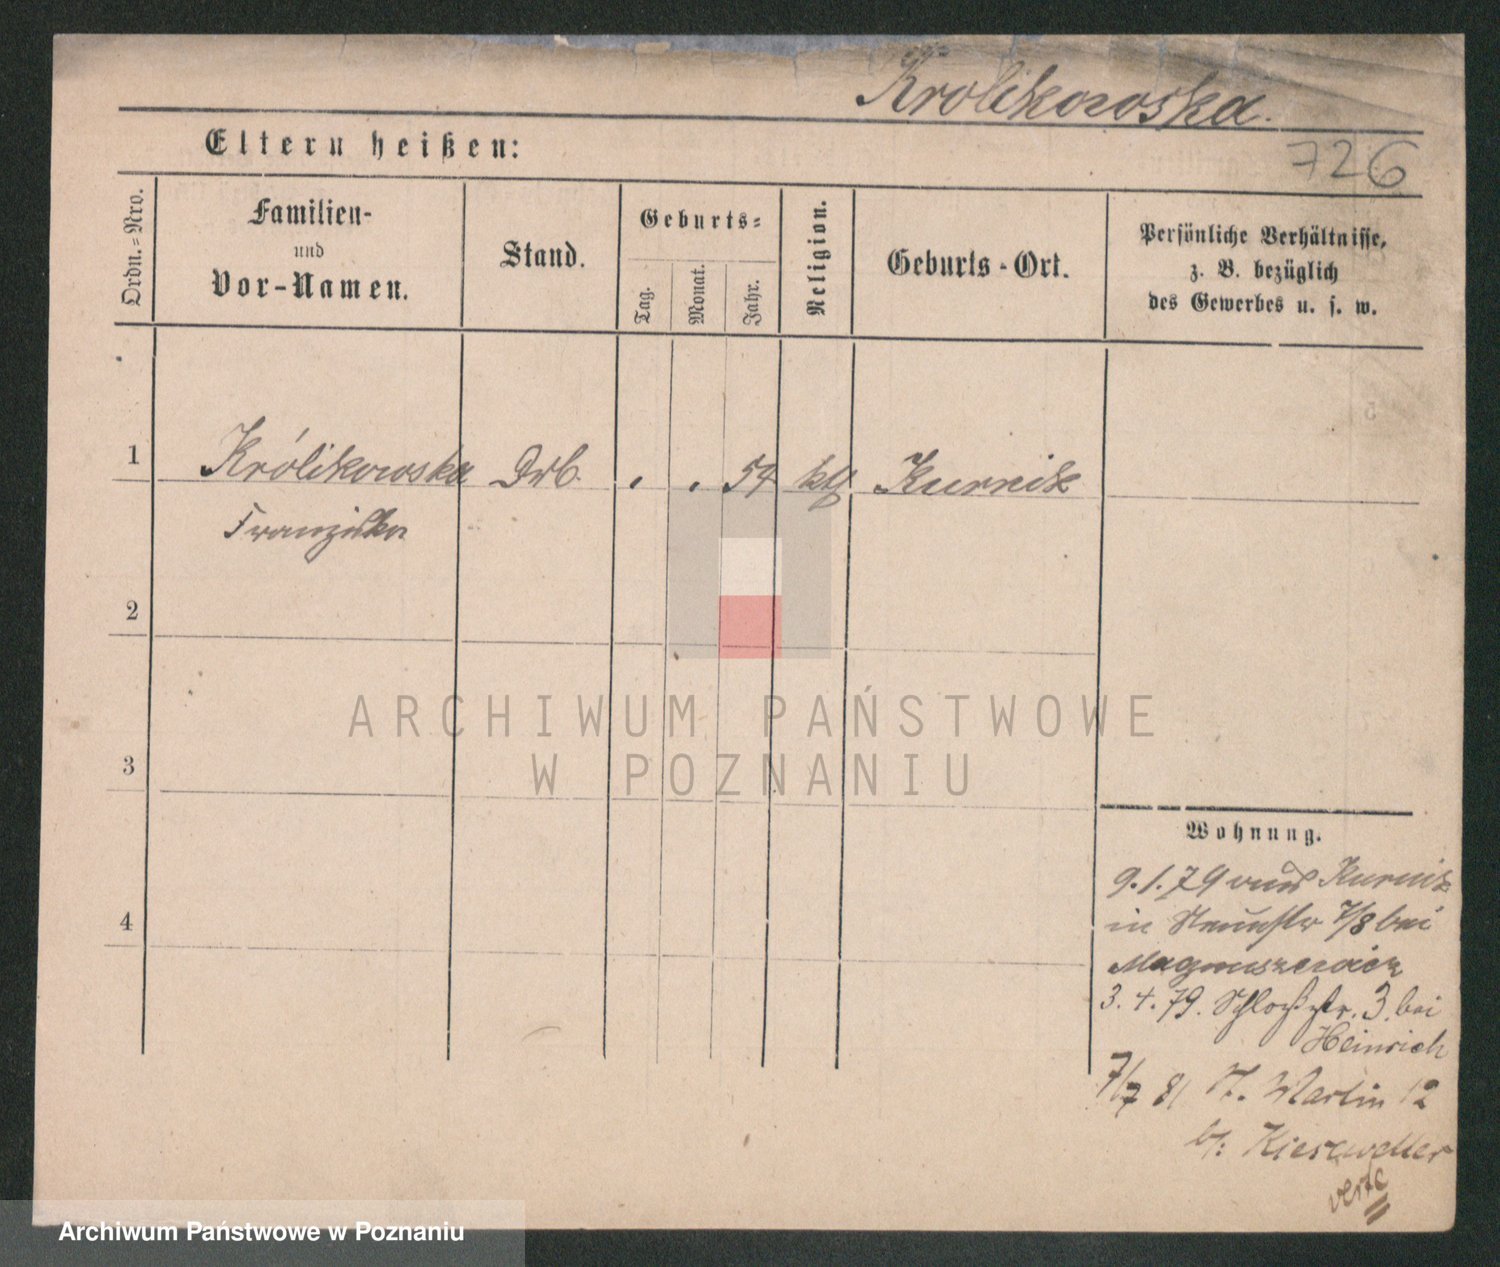 Królikowska.
726
Eltern heißen:
Ordn.=Nro.
Familien-
und
Vor-Namen.
Stand.
Geburts=
Tag.
Monat.
Jahr.
Religion.
Geburts-Ort.
Persönliche Verhältnisse,
z. B. bezüglich
des Gewerbes u. s. w.
1
Królikowska
Franziska
54
kth
Kurnik
2
3
4
ARCHIWUM PAŃSTWOWE
W POZNANIU
Wohnung.
9.1.79 aus Kurnik
in Neuestr 7/8 bei
Magnuszewicz
3.4.79. Schloßstr. 3. bei
Heinrich
7/7 81 St. Martin 12
b/: Kiesewetter
verte
Archiwum Państwowe w Poznaniu